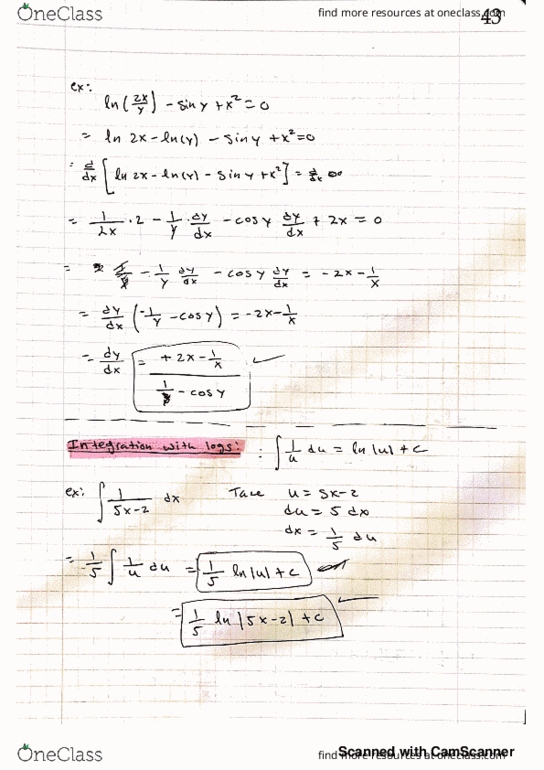 OneClass
find more resources at oneclass.com
43
ex:
ln(2x/y) - sin y + x² = 0
= ln 2x - ln(y) - sin y + x² = 0
= d/dx [ln 2x - ln(y) - sin y + x²] = d/dx
= 1/2x · 2 - 1/y · dy/dx - cos y dy/dx + 2x = 0
= - 1/y dy/dx - cos y dy/dx = - 2x - 1/x
= dy/dx (-1/y - cos y) = -2x - 1/x
= dy/dx = + 2x - 1/x
1/y - cos y
Integration with logs: : ∫ 1/u du = ln|u| + c
ex: ∫ 1/5x-2 dx Take u = 5x-2
du = 5 dx
dx = 1/5 du
= 1/5 ∫ 1/u du = 1/5 ln|u| + c
= 1/5 ln|5x-2| + c
OneClass
find more resources at oneclass.com
Scanned with CamScanner